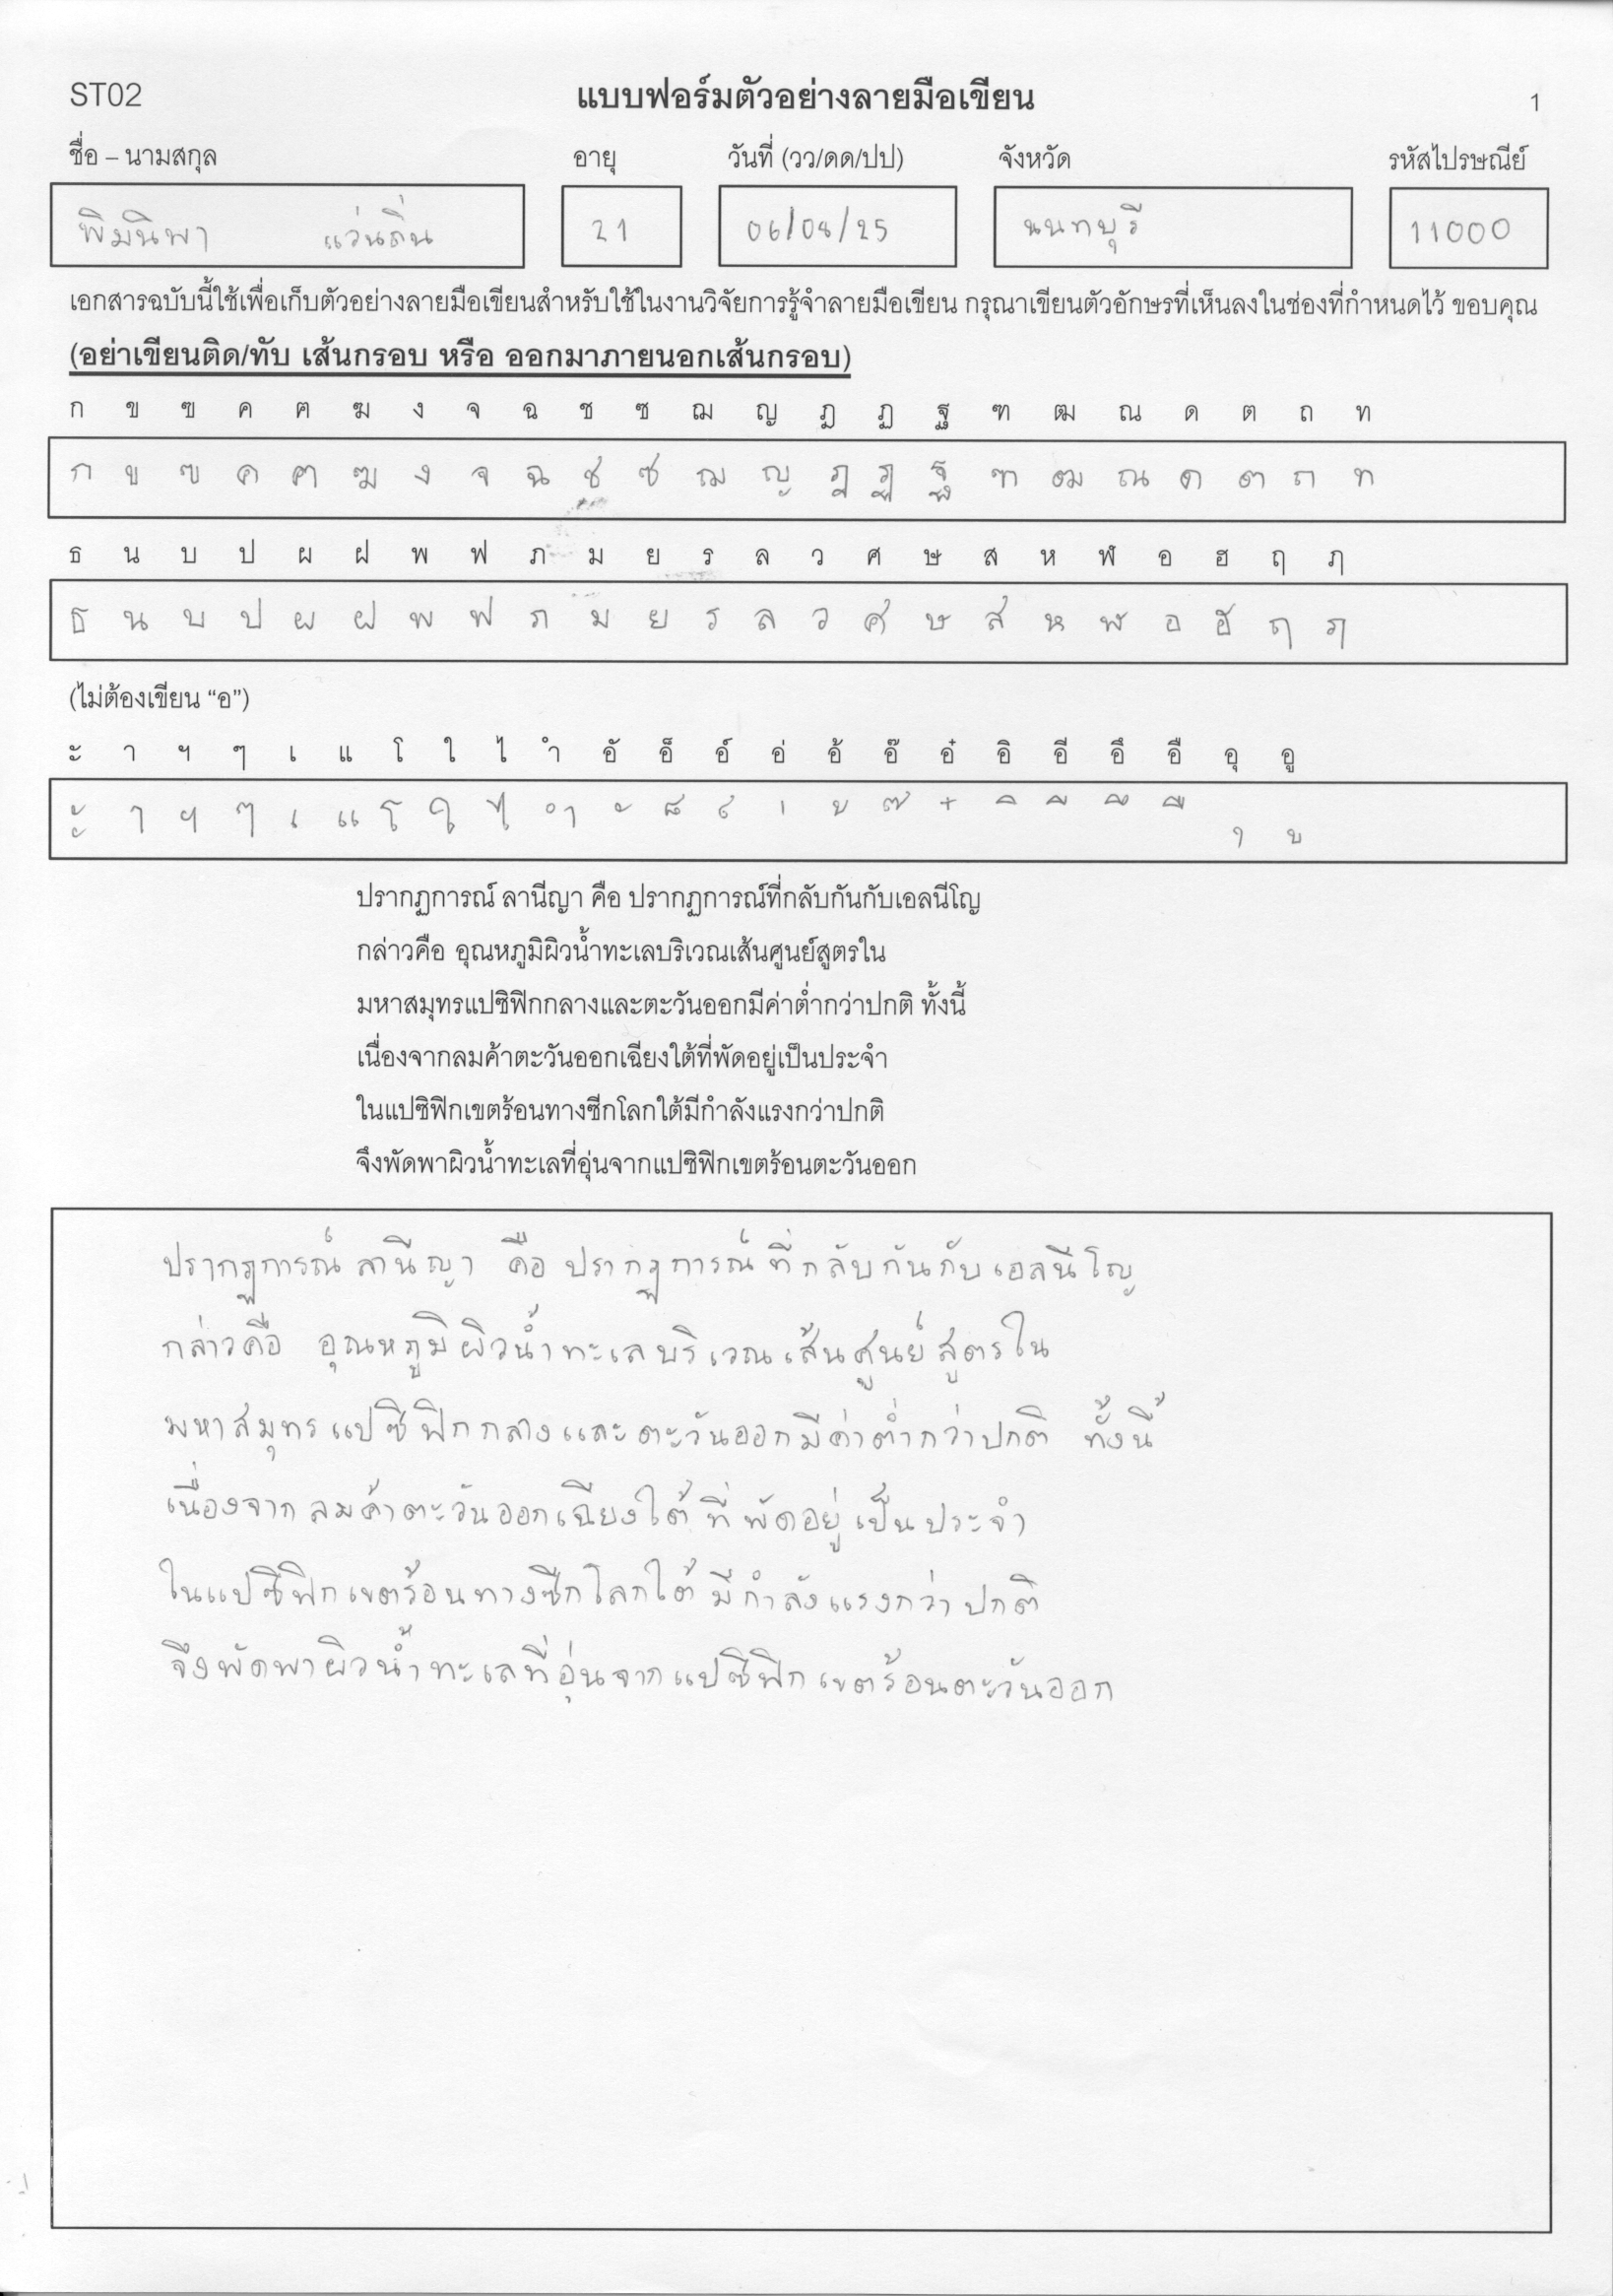 ST02 แบบฟอร์มตัวอย่างลายมือเขียน 1
ชื่อ – นามสกุล อายุ วันที่ (วว/ดด/ปป) จังหวัด รหัสไปรษณีย์
พิมนิพา แว่นถิ่น 21 06/08/25 นนทบุรี 11000
เอกสารฉบับนี้ใช้เพื่อเก็บตัวอย่างลายมือเขียนสำหรับใช้ในงานวิจัยการรู้จำลายมือเขียน กรุณาเขียนตัวอักษรที่เห็นลงในช่องที่กำหนดไว้ ขอบคุณ
(อย่าเขียนติด/ทับ เส้นกรอบ หรือ ออกมาภายนอกเส้นกรอบ)
ก ข ฃ ค ฅ ฆ ง จ ฉ ช ซ ฌ ญ ฎ ฏ ฐ ฑ ฒ ณ ด ต ถ ท
ก ข ฃ ค ฅ ฆ ง จ ฉ ช ซ ฌ ญ ฎ ฏ ฐ ฑ ฒ ณ ด ต ถ ท
ธ น บ ป ผ ฝ พ ฟ ภ ม ย ร ล ว ศ ษ ส ห ฬ อ ฮ ฤ ฦ
ธ น บ ป ผ ฝ พ ฟ ภ ม ย ร ล ว ศ ษ ส ห ฬ อ ฮ ฤ ฦ
(ไม่ต้องเขียน “อ”)
ะ า ฯ ๆ เ แ โ ใ ไ ำ อั อ็ อ์ อ่ อ้ อ๊ อ๋ อิ อี อึ อื อุ อู
ะ า ฯ ๆ เ แ โ ใ ไ ำ ั ็ ์ ่ ้ ๊ ๋ ิ ี ึ ื ุ ู
ปรากฏการณ์ ลานีญา คือ ปรากฏการณ์ที่กลับกันกับเอลนีโญ
กล่าวคือ อุณหภูมิผิวน้ำทะเลบริเวณเส้นศูนย์สูตรใน
มหาสมุทรแปซิฟิกกลางและตะวันออกมีค่าต่ำกว่าปกติ ทั้งนี้
เนื่องจากลมค้าตะวันออกเฉียงใต้ที่พัดอยู่เป็นประจำ
ในแปซิฟิกเขตร้อนทางซีกโลกใต้มีกำลังแรงกว่าปกติ
จึงพัดพาผิวน้ำทะเลที่อุ่นจากแปซิฟิกเขตร้อนตะวันออก
ปรากฏการณ์ ลานีญา คือ ปรากฏการณ์ที่กลับกันกับเอลนีโญ
กล่าวคือ อุณหภูมิผิวน้ำทะเลบริเวณเส้นศูนย์สูตรใน
มหาสมุทรแปซิฟิกกลางและตะวันออกมีค่าต่ำกว่าปกติ ทั้งนี้
เนื่องจากลมค้าตะวันออกเฉียงใต้ที่พัดอยู่เป็นประจำ
ในแปซิฟิกเขตร้อนทางซีกโลกใต้มีกำลังแรงกว่าปกติ
จึงพัดพาผิวน้ำทะเลที่อุ่นจากแปซิฟิกเขตร้อนตะวันออก